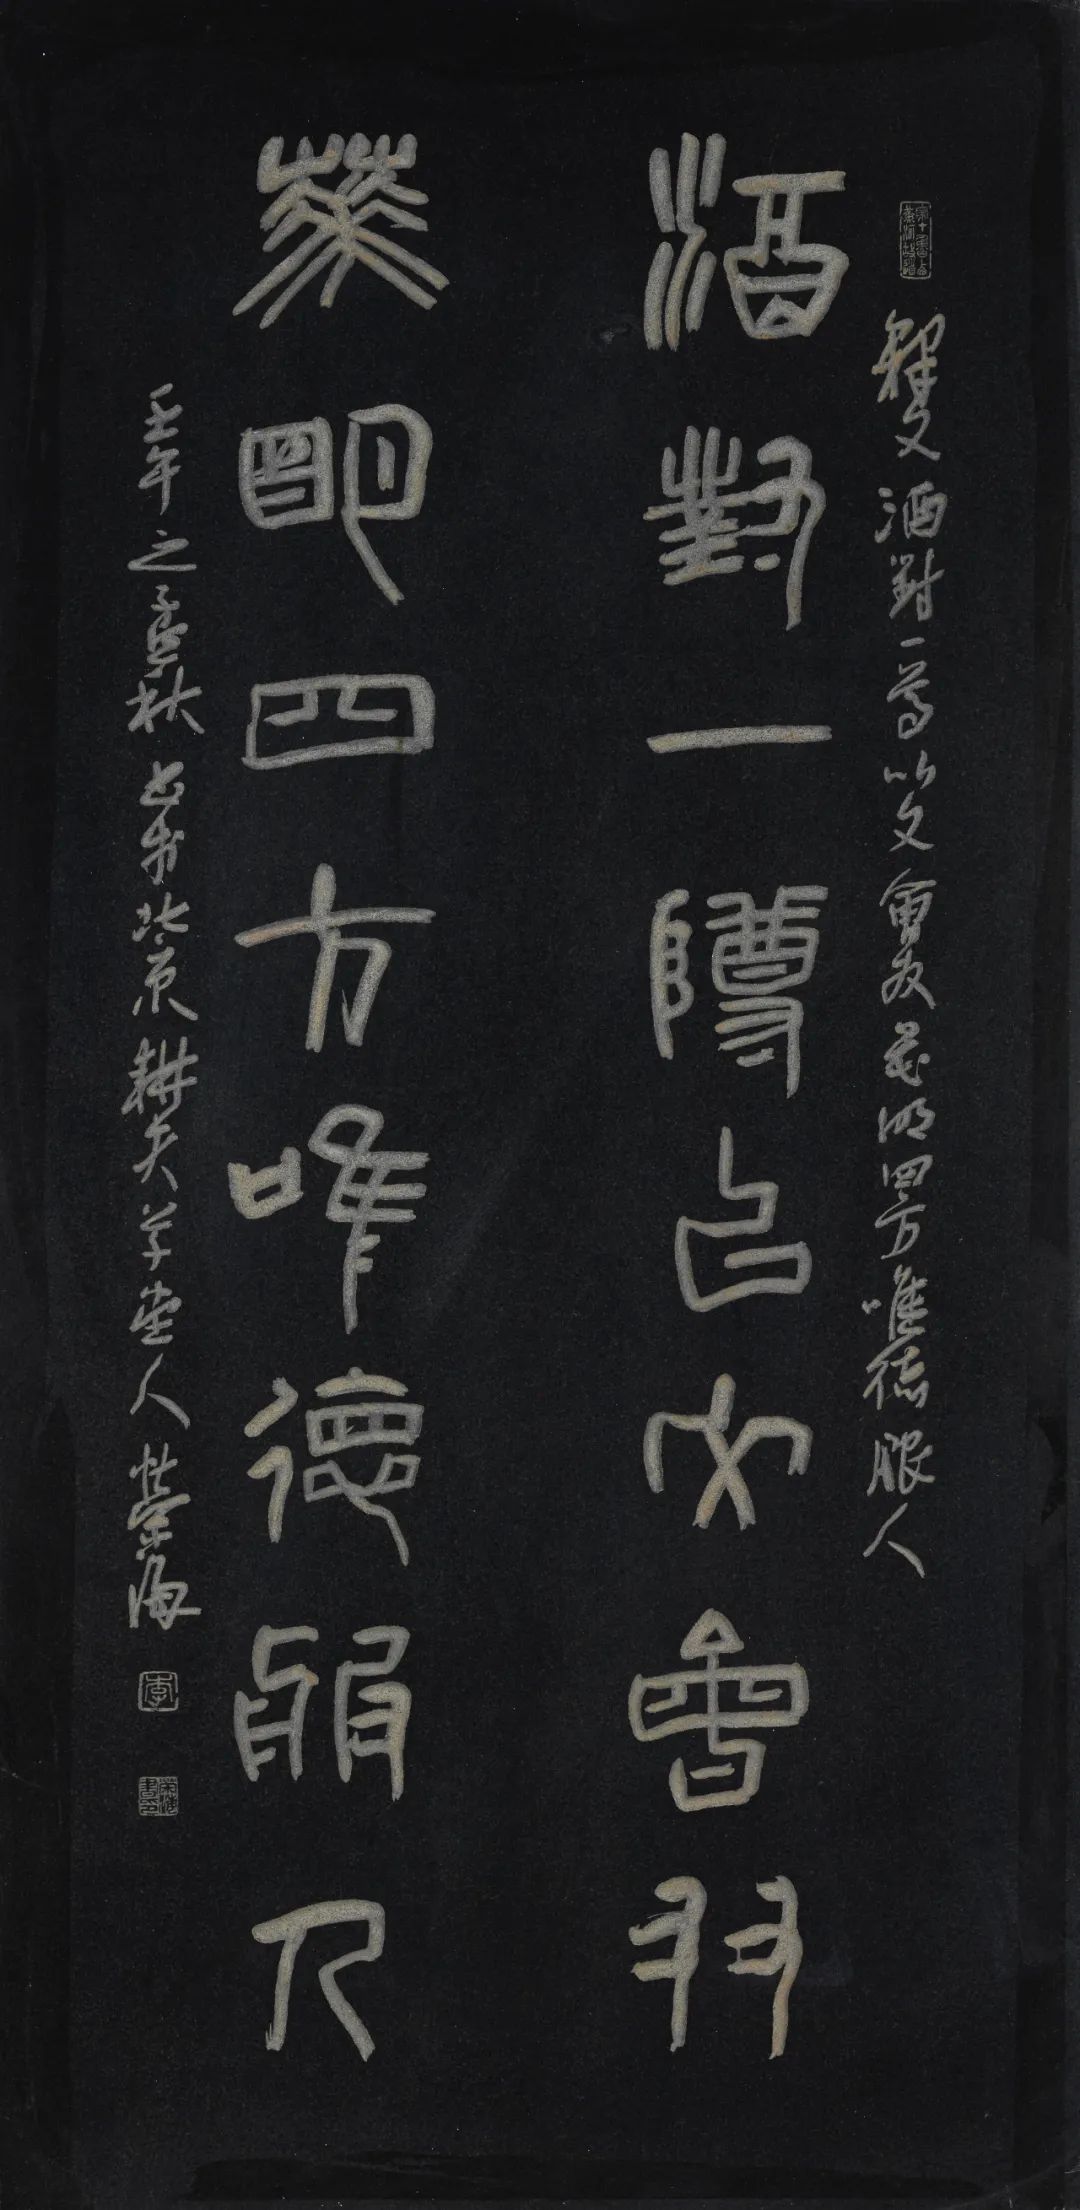 釋文 酒對一尊以文會友花明四方唯德服人
酒對一尊以文會友
花明四方唯德服人
壬午之孟秋書於北京耕夫草堂人榮海
李